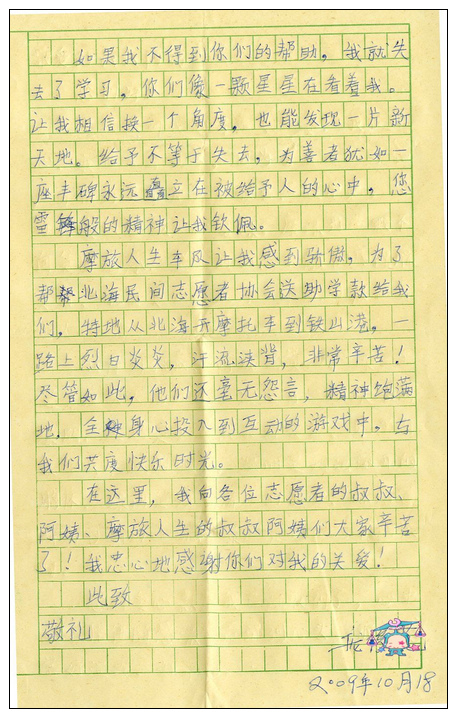 如果我不得到你们的帮助，我就失
去了学习，你们像一颗星星在看着我。
让我相信换一个角度，也能发现一片新
天地。给予不等于失去，为善者犹如一
座丰碑永远矗立在被给予人的心中，您
雷锋般的精神让我钦佩。
摩旅人生车队让我感到骄傲，为了
帮北海民间志愿者协会送助学款给我
们，特地从北海开摩托车到铁山港，一
路上烈日炎炎，汗流浃背，非常辛苦！
尽管如此，他们还毫无怨言，精神饱满
地，全身心投入到互动的游戏中，与
我们共度快乐时光。
在这里，我向各位志愿者的叔叔、
阿姨、摩旅人生的叔叔阿姨们大家辛苦
了！我忠心地感谢你们对我的关爱！
此致
敬礼
2009年10月18